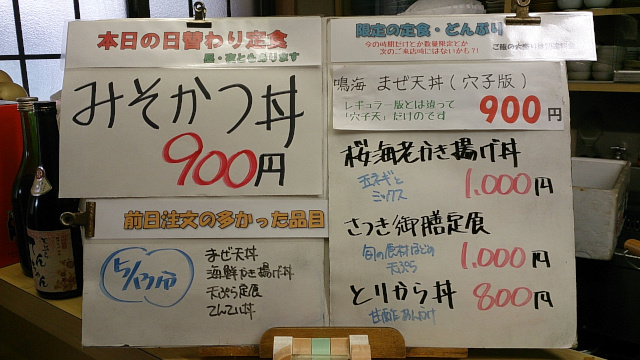 本日の日替わり定食
昼・夜ともあります
みそかつ丼
900円
前日注文の多かった品目
まぜ天丼
海鮮かき揚げ丼
天ぷら定食
限定の定食・どんぶり
今の時期だけとか数量限定とか
次のご来店時にはないかも?!
鳴海 まぜ天丼(穴子版)
レギュラー版とは違って
「穴子天」だけのです
900円
桜海老かき揚げ丼
玉ネギと
ミックス
1.000円
さつき御膳定食
旬の食材ほどの
天ぷら
1.000円
とりから丼
800円